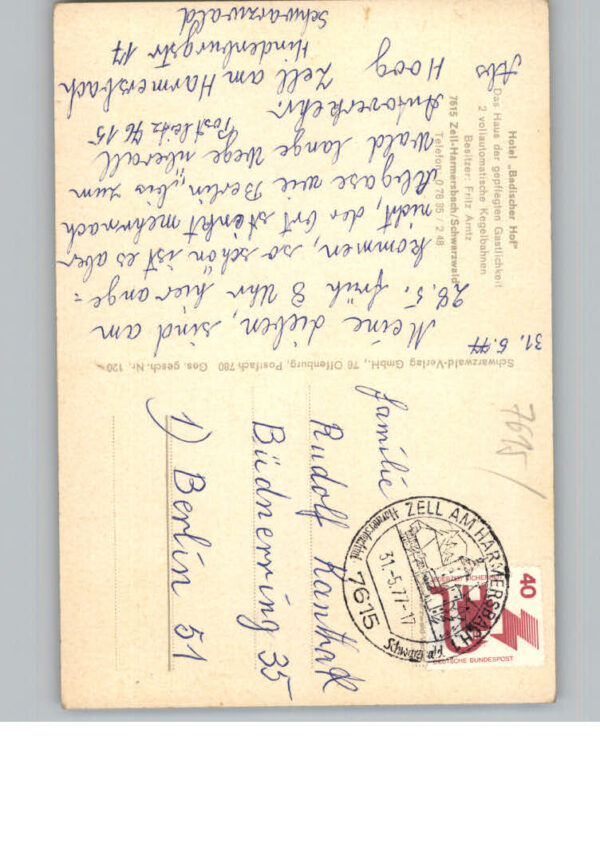 Hotel „Badischer Hof"
Das Haus der gepflegten Gastlichkeit
2 vollautomatische Kegelbahnen
Besitzer: Fritz Arntz
7615 Zell-Harmersbach/Schwarzwald
Telefon 0 78 35 / 2 48
31. 5. 77
Meine Lieben, sind am
28.5. früh 8 Uhr hier ange=
kommen, so schön ist es aber
nicht, der Ort stinkt mehr nach
Abgase wie Berlin, bis zum
Wald lange Wege überall
Autoverkehr.
Postleitz 76 15
Abs Hoog Zell am Harmersbach
Hindenburgstr 17
Schwarzwald
Schwarzwald-Verlag GmbH., 76 Offenburg, Postfach 780 Ges. gesch. Nr. 120
7615/
Familie
Rudolf
Büdnerring 35
1) Berlin 51
7615 ZELL AM HARMERSBACH 1
31.-5.77-17
Schwarzwald
40
JEDERZEIT SICHERHEIT
DEUTSCHE BUNDESPOST